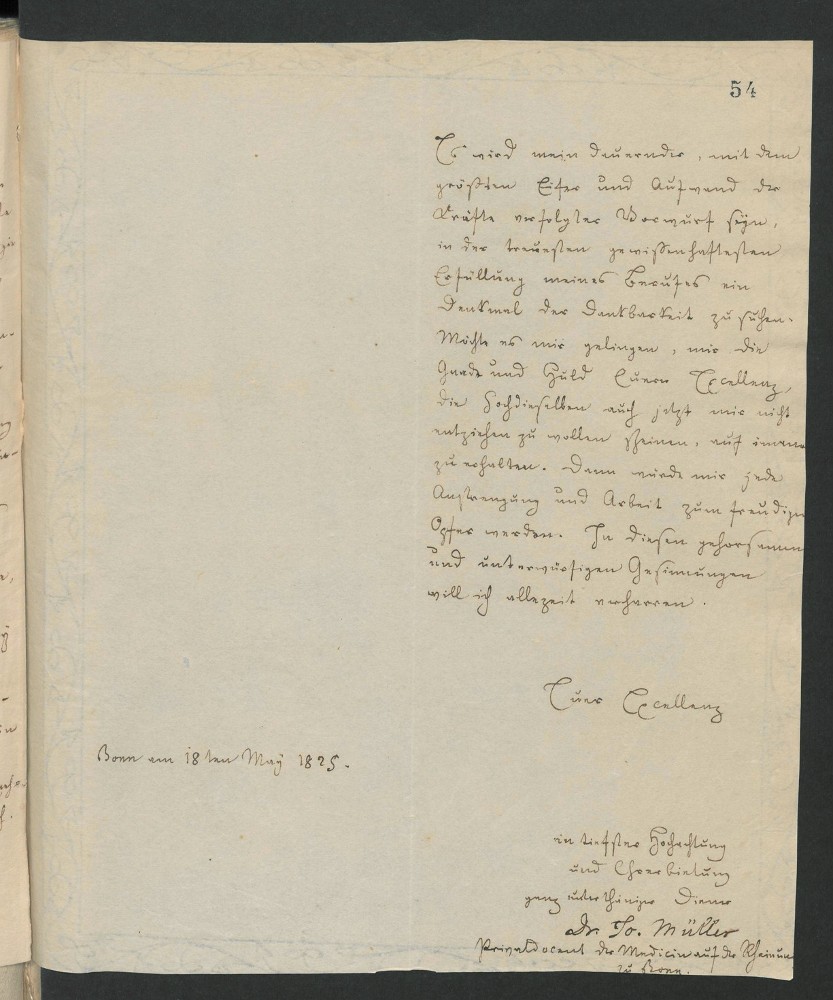 54
Es wird mein dauernder, mit dem
größten Eifer und Aufwand der
Kräfte verfolgter Vorwurf seÿn,
in der treuesten gewissenhaftesten
Erfüllung meines Berufes ein
Denkmal der Dankbarkeit zu suchen.
Möchte es mir gelingen, mir die
Gnade und Huld Euerer Excellenz,
die Hochdieselben auch jetzt mir nicht
entziehen zu wollen scheinen, auf immer
zu erhalten. Dann würde mir jede
Anstrengung und Arbeit zum freudigen
Opfer werden. In diesen gehorsamen
und unterwürfigen Gesinnungen
will ich allezeit verharren.
Euer Excellenz
Bonn am 18ten Maÿ 1825.
in tiefster Hochachtung
und Ehrerbietung
ganz unterthäniger Diener
Dr. Jo. Müller
Privatdocent der Medicin auf der Rheinun
zu Bonn.